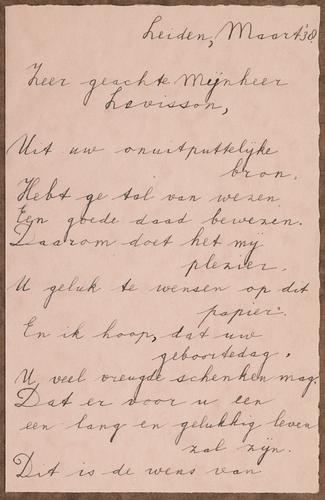 Leiden, Maart '38.
Zeer geachte Mijnheer
Levisson,
Uit uw onuitputtelijke
bron.
Hebt ge tal van wezen
Een goede daad bewezen.
Daarom doet het mij
plezier.
U geluk te wensen op dit
papier.
En ik hoop, dat uw
geboortedag,
U veel vreugde schenken mag.
Dat er voor u een
een lang en gelukkig leven
zal zijn.
Dit is de wens van